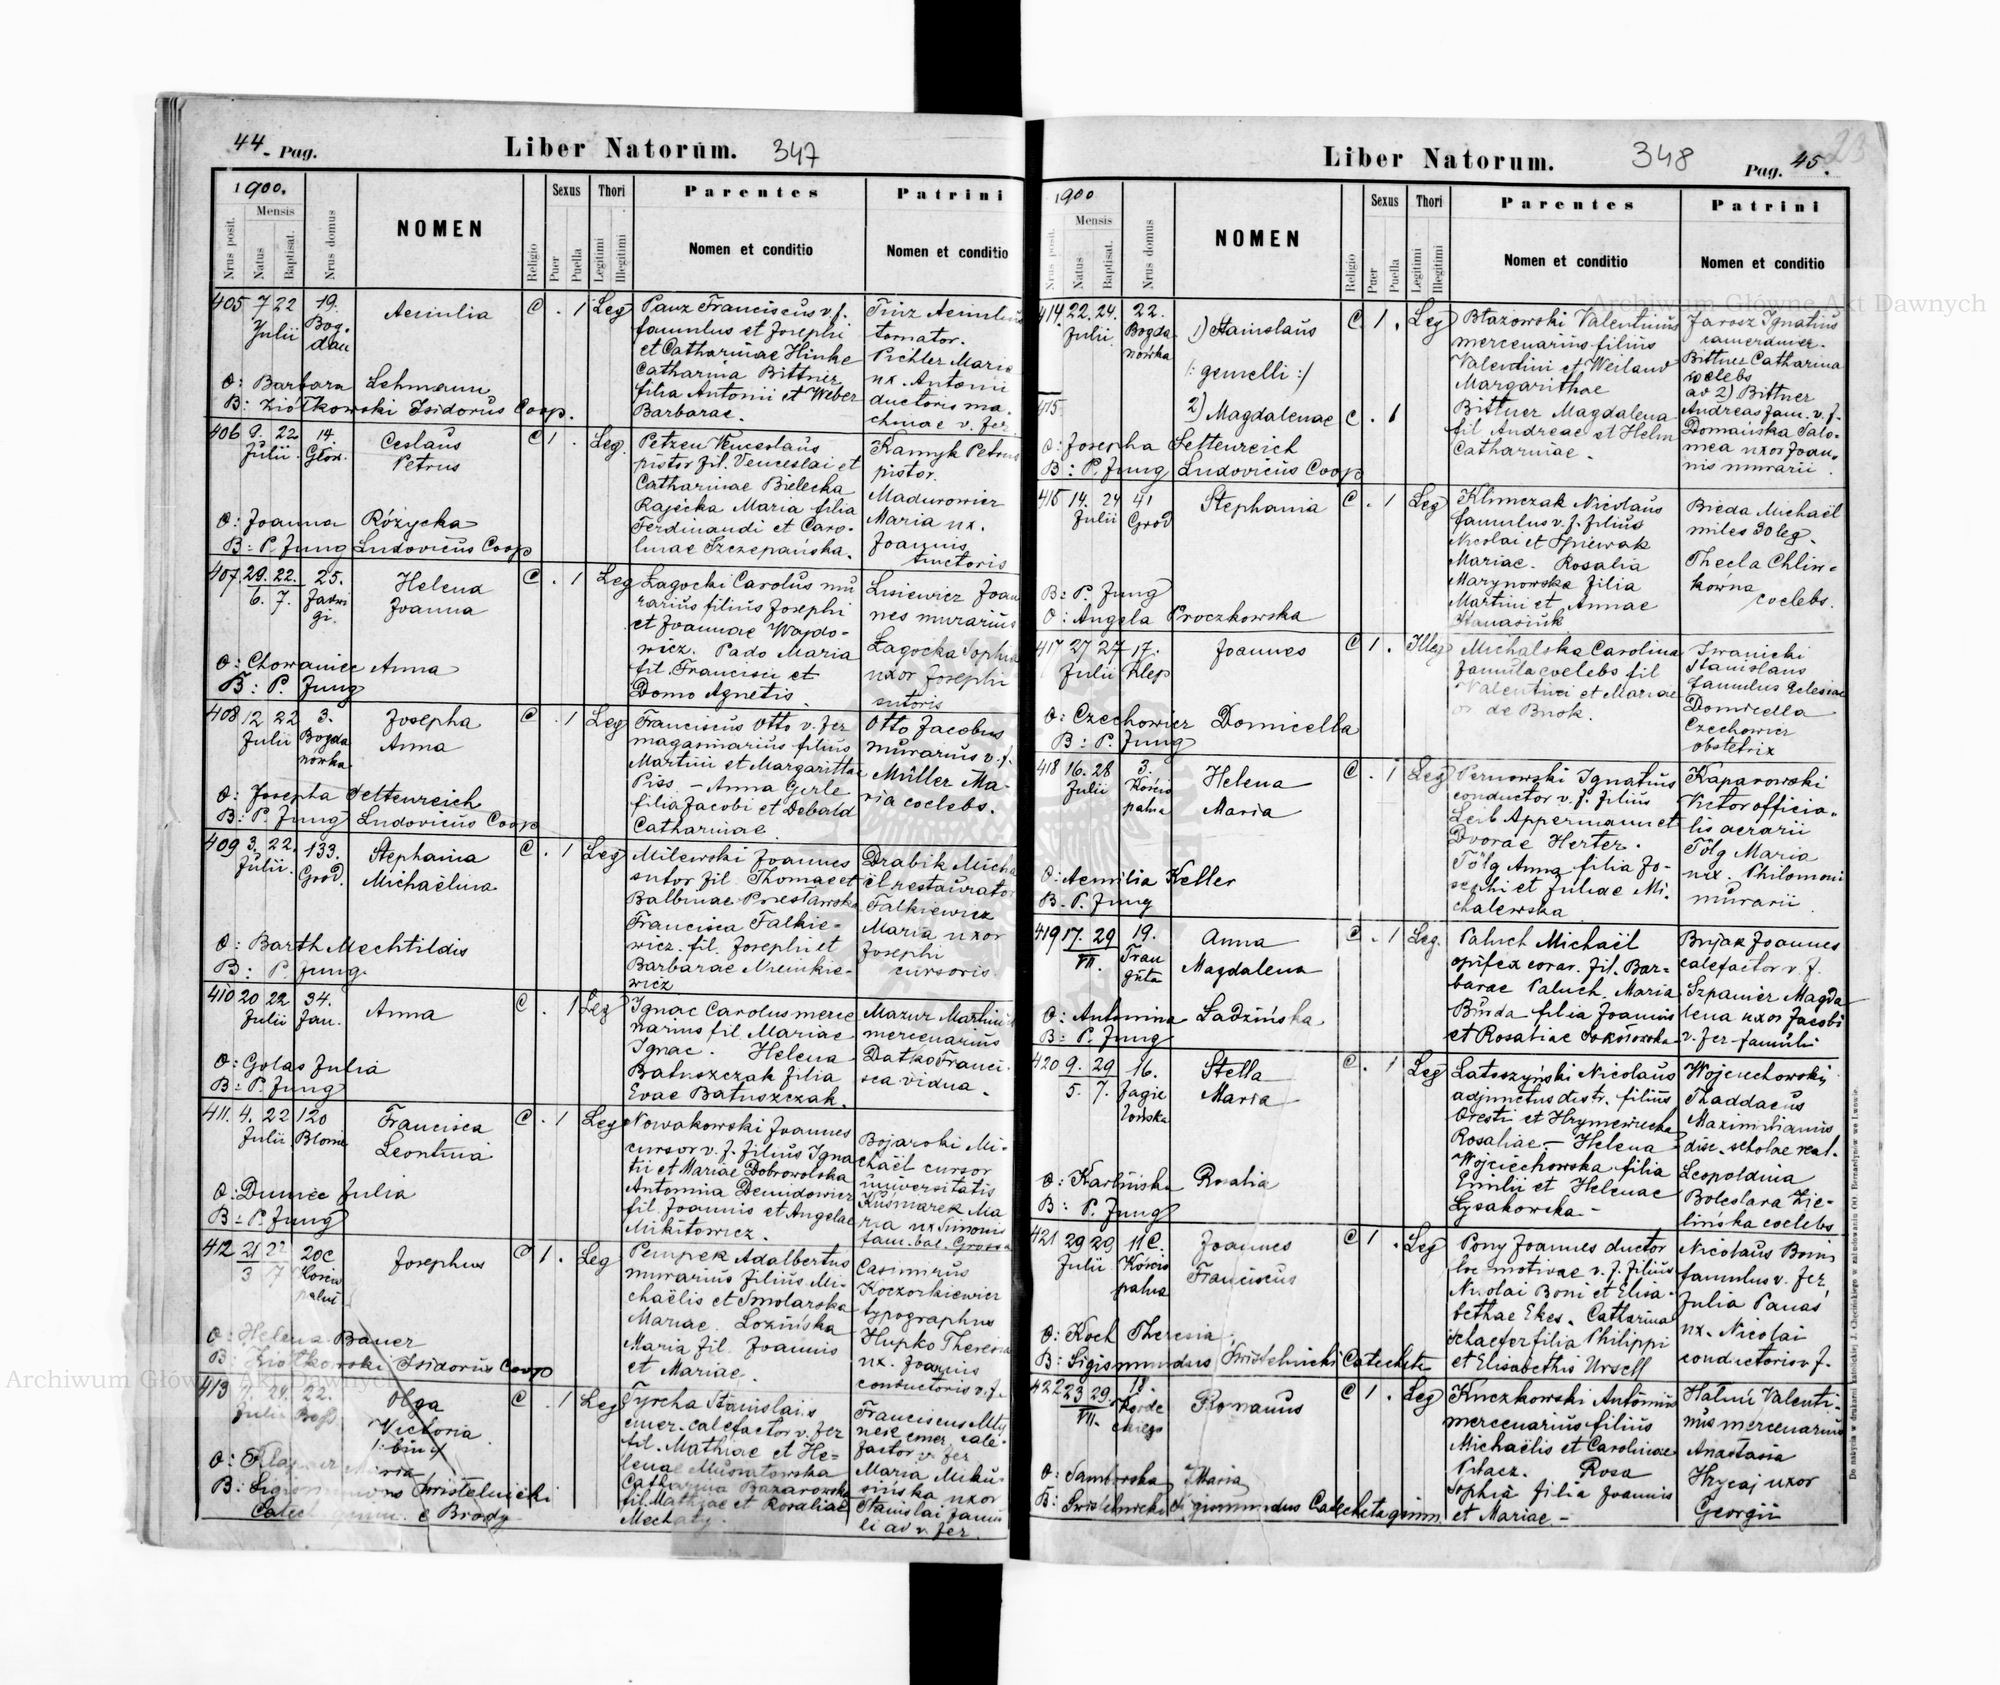 44. Pag.
Liber Natorum. 347
1900.
Nrus posit.
Mensis
Natus
Baptisat.
Nrus domus
NOMEN
Religio
Sexus
Puer
Puella
Thori
Legitimi
Illegitimi
Parentes
Nomen et conditio
Patrini
Nomen et conditio
405 7 22 Julii
19. Bog-
dan
Aemilia
C . 1 Leg
Panz Franciscus v. f.
famulus et Josephi
et Catharinae Hinke
Catharina Bittner
filia Antonii et Weber
Barbarae.
Tinz Aemilius
tornator.
Pichler Marie
ux. Antonii
ductoris ma-
chinae v. fer
O: Barbara Lehmann
B: Ziółkowski Isidorus Coop.
406 9. 22 Julii
14. Głow.
Ceslaus
Petrus
C 1 . Leg.
Petzen Venceslaus
pistor fil. Venceslai et
Catharinae Bielecka
Rajecka Maria filia
Ferdinandi et Caro-
linae Szczepańska.
Kamyk Petrus
pistor.
Madurowicz
Maria ux.
Joannis
tinctoris
O: Joanna Różycka
B: P. Jung Ludovicus Coop
407 29. 22.
6. 7.
25.
Jadwi
gi.
Helena
Joanna
C . 1 Leg
Łagocki Carolus mu
rarius filius Josephi
et Joannae Wojdo-
wicz. Pado Maria
fil. Francisci et
Domo Agnetis.
Lisiewicz Joan
nes murarius
Łagocka Sophia
uxor Josephi
sutoris
O: Chowaniec Anna
B: P. Jung
408 12 22 Julii
3.
Bogda
nówka
Josepha
Anna
C . 1 Leg
Franciscus Otto v. fer
magasinarius filius
Martini et Margarittae
Piss - Anna Gerle
filia Jacobi et Debald
Catharinae
Otto Jacobus
murarius v. f.
Müller Ma-
ria coelebs.
O: Josepha Settenreich
B: P. Jung Ludovicus Coop
409 3. 22. Julii.
133.
Grod.
Stephania
Michaëlina
C . 1 Leg
Milewski Joannes
sutor fil. Thomae et
Balbinae
Francisca Falkie-
wicz. fil. Josephi et
Barbarae
wicz
Drabik Micha
ël restaurator
Falkiewicz
Maria uxor
Josephi
cursoris.
O: Barth Mechtildis
B: P. Jung
410 20 22 Julii
34.
Jan.
Anna
C . 1 Leg
Ignac Carolus merce
narius fil Mariae
Ignac. Helena
Batuszczak filia
Evae Batuszczak.
Mazur Martinus
mercenarius
Datko Franci
sca vidua.
O: Golas Julia
B: P. Jung
411. 4. 22 Julii
120
Błonie
Francisca
Leontina
C . 1 Leg
Nowakowski Joannes
cursor v. f. filius Igna
tii et Mariae Dobrowolska
Antonina Demidowicz
fil. Joannis et Angelae
Mikitowicz.
Bojarski Mi-
chaël cursor
universitatis
Kuśmarek Ma
ria ux Simonis
fam. bal. Grossa
O: Duniec Julia
B: P. Jung
412 21 22
3 7
20c
Kościu
palni
Josephus
C 1 . Leg
Pempek Adalbertus
murarius filius Mi-
chaëlis et Smolarska
Mariae. Lozińska
Maria fil. Joannis
et Mariae.
Casimirus
Koczorkiewicz
typographus
Hupko Theresia
ux. Joannis
conductoris v. f.
O: Helena Bauer
B: Ziółkowski Isidorus Coop
413 24. Julii
22.
Bogd.
Olga
Victoria
C . 1 Leg
Tyrcha Stanislaus
emer. calefactor v. fer
fil. Mathiae et He-
lenae Muratowska
Catharina Bazarowska
fil. Mathiae et Rosaliae
Franciscus Mły
nek emer. cale-
factor v. fer
Maria Miku-
sińska uxor
Stanislai famu
li ad v. fer.
O: Maria
B: Sigismundus Świstelnicki
Catech. gymn. e Brody
Liber Natorum. 348
Pag. 45. 23
1900
Nrus posit.
Mensis
Natus
Baptisat.
Nrus domus
NOMEN
Religio
Sexus
Puer
Puella
Thori
Legitimi
Illegitimi
Parentes
Nomen et conditio
Patrini
Nomen et conditio
414. 22. 24. Julii
22.
Bogda
nówka
1) Stanislaus
/: gemelli :/
415.
2) Magdalenae
C. 1 . Leg
C . 1
Błazowski Valentinus
mercenarius filius
Valentini et Weiland
Margarithae
Bittner Magdalena
fil Andreae et Helm
Catharinae.
Jarosz Ignatius
Bittner Catharina
coelebs
ad 2) Bittner
Andreas fam. v. f.
Domańska Salo-
mea uxor Joan-
nis murarii
O: Josepha Settenreich
B: P. Jung Ludovicus Coop
415 14. 24 Julii
41
Grod
Stephania
C . 1 Leg
Klimczak Nicolaus
famulus v. f. filius
Nicolai et Śpiewak
Mariae. Rosalia
Marynowska filia
Martini et Annae
Stanasiuk
Bieda Michaël
miles 30 leg.
Thecla Chlin-
kówna
coelebs.
B: P. Jung
O: Angela Proczkowska
417 27 27 Julii
17.
Klep
Joannes
C 1 . Illeg
Michalska Carolina
famula coelebs fil
Valentini et Mariae
de Busk.
Iwanicki
Stanislaus
famulus Eclesiae
Domicella
Czechowicz
obstetrix
O: Czechowicz Domicella
B: P. Jung
418 16. 28 Julii
3.
Kościu
palna
Helena
Maria
C . 1 Leg
Pernowski Ignatius
conductor v. f. filius
Leib Appermann et
Dvorae Herter.
Tölg Anna filia Jo-
sephi et Juliae Mi-
chalewska
Kaparowski
Victor officia-
lis aerarii
Tölg Maria
ux. Philomoni
murarii
O: Aemilia Keller
B. P. Jung
419 17. 29
VII.
19.
Trau
guta
Anna
Magdalena
C . 1 Leg.
Paluch Michaël
opifex corar. fil. Bar-
barae Paluch. Maria
Burda filia Joannis
et Rosaliae Sokołowska
Bujak Joannes
calefactor v. f.
Szpanier Magda
lena uxor Jacobi
v. fer famuli
O: Antonina Ładzińska
B: P. Jung
420 9. 29
5. 7.
16.
Jagie
lońska
Stella
Maria
C . 1 Leg
Lateszyński Nicolaus
adjunctus distr. filius
Oresti et Hryniewiecka
Rosaliae - Helena
Wojciechowska filia
Emilii et Helenae
Łysakowska -
Wojciechowski
Thaddaeus
Maximinianus
disc. scholae real.
Leopoldina
Boleslava Zie-
lińska coelebs
O: Karlińska Rosalia
B: P. Jung
421 29 29 Julii
11C.
Kościu
palna
Joannes
Franciscus
C 1 . Leg
Pony Joannes ductor
locomotivae v. f. filius
Nicolai Boni et Elisa-
bethae Ekes. Catharina
Schaefer filia Philippi
et Elisabethis Ursell
Nicolaus Bonis
famulus v. fer,
Julia Panas
ux. Nicolai
conductoris v f.
O: Koch Theresia
B: Sigismundus Świstelnicki Catecheta
422 23 29.
VII.
18.
Korde
ckiego
Romanus
C 1 . Leg
Kuczkowski Antonius
mercenarius filius
Michaëlis et Carolinae
Pitacz. Rosa
Sophia filia Joannis
et Mariae -
Hatuń Valenti-
nus mercenarius
Anastasia
Hrycaj uxor
Georgii
O: Samborska Maria
B: Świstelnicki Sigismundus Catecheta gimn.
Do nabycia w drukarni katolickiej J. Chęcińskiego w zabudowaniu OO. Bernardynów we Lwowie.
Archiwum Główne Akt Dawnych
Archiwum Główne Akt Dawnych